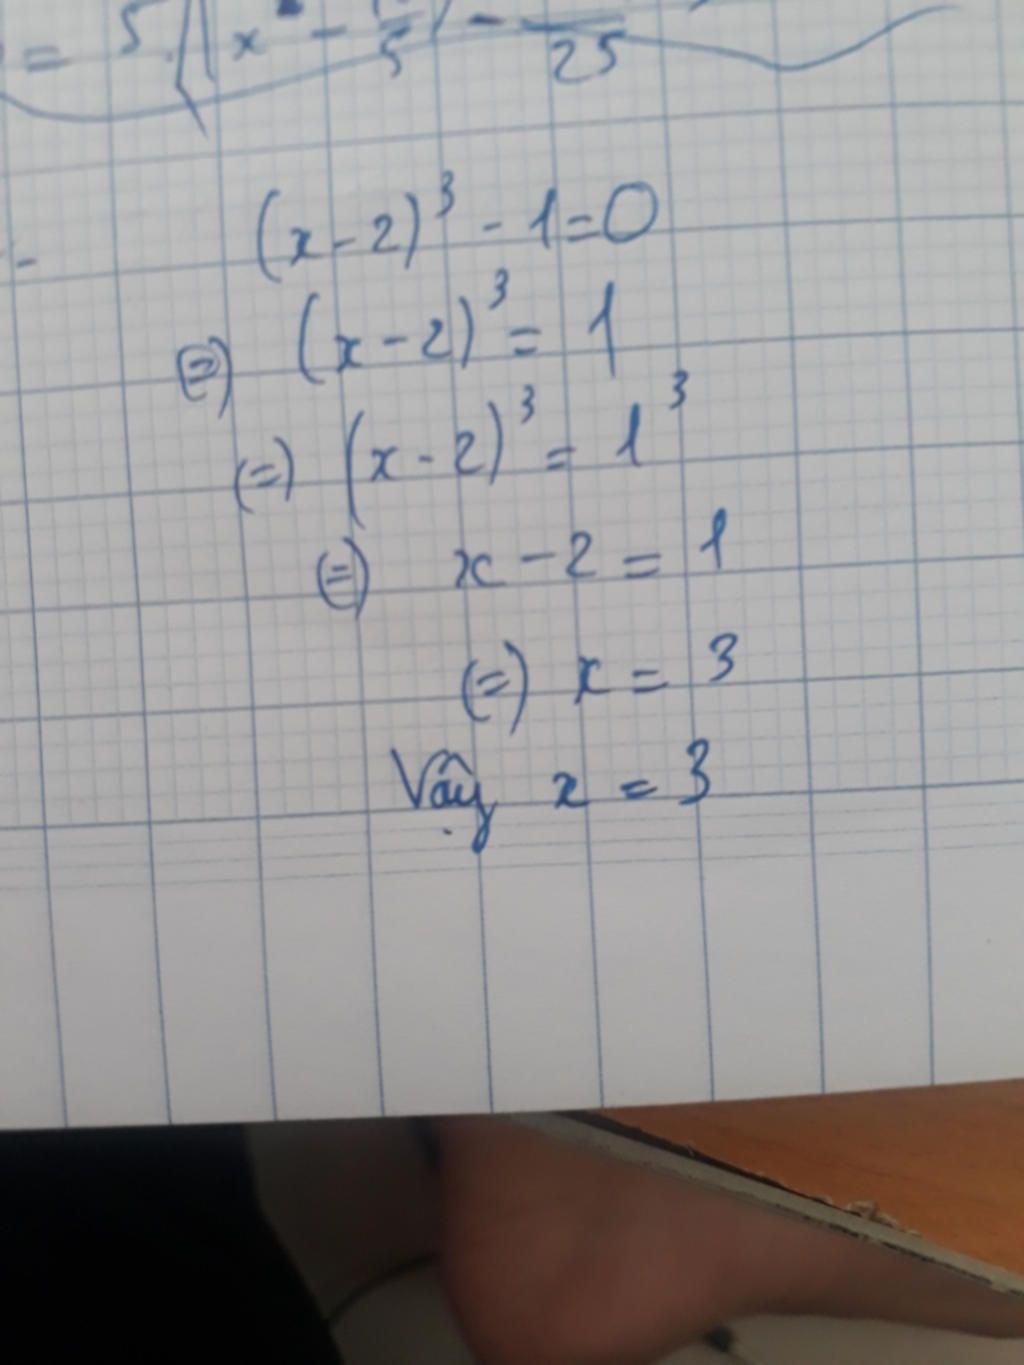 = 5.(x - /5) - /25
(x - 2)³ - 1 = 0
(=) (x - 2)³ = 1
(=) (x - 2)³ = 1³
(=) x - 2 = 1
(=) x = 3
Vậy x = 3